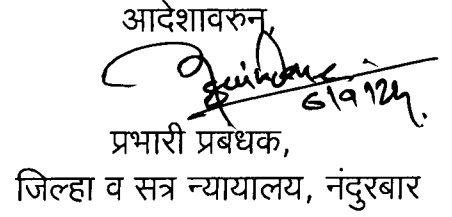 आदेशावरुन,
प्रभारी प्रबंधक,
जिल्हा व सत्र न्यायालय, नंदुरबार